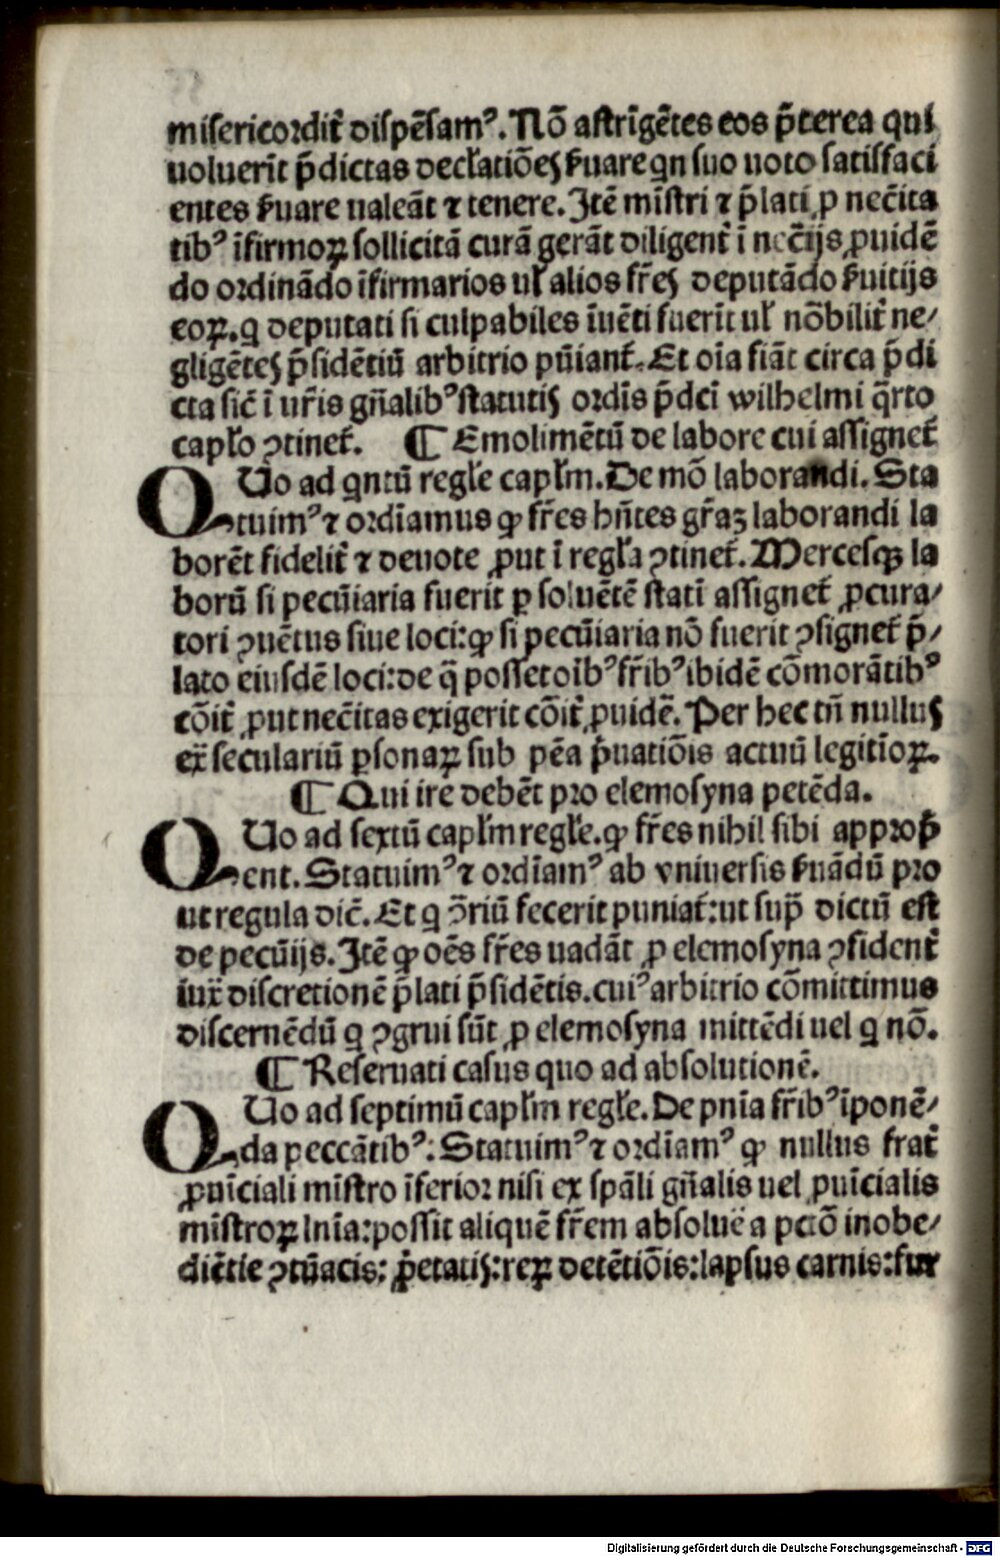 misericordit᷑ dispēsamꝰ. Nō astrīgētes eos p̄terea qui
uoluerīt p̄dictas declatiōes ẜuare qn suo uoto satisfaci
entes ẜuare ualeāt ⁊ tenere. Itē mīstri ⁊ p̄lati ꝓ nec̄ita
tibꝰ īfirmoꝝ sollicitā curā gerāt diligent᷑ ī nec̄ijs ꝓuidē
do ordinādo īfirmarios ul̄ alios fr̄es deputādo ẜuitijs
eoꝝ. q deputati si culpabiles īuēti fuerīt ul̄ nōbilit᷑ ne/
gligētes p̄sidētiū arbitrio pūiant᷑. Et oīa fiāt circa p̄di
cta sic̄ ī ur̄is gn̄alibꝰ statutis ordīs p̄dcī wilhelmi q̄rto
capl̄o ꝯtinet᷑. ¶ Emolimētū de labore cui assignet᷑
QUo ad qntū regl̄e capl̄m. De mō laborandi. Sta
tuimꝰ ⁊ ordīamus ꝙ fr̄es hn̄tes gr̄aꝫ laborandi la
borēt fidelit᷑ ⁊ deuote ꝓut ī regl̄a ꝯtinet᷑. Mercesqꝫ la
borū si pecūiaria fuerit ꝑ soluētē statī assignet᷑ ꝓcura/
tori ꝯuētus siue loci: ꝙ si pecūiaria nō fuerit ꝯsignet᷑ p̄/
lato eiusdē loci: de q̄ posset oībꝰ fr̄ibꝰ ibidē cōmorātibꝰ
cōit᷑ ꝓut nec̄itas exigerit cōit᷑ ꝓuidē. Per hec tn̄ nullus
ex̄ seculariū ꝑsonaꝝ sub pēa p̄uatiōis actuū legitīoꝝ.
¶ Qui ire debēt pro elemosyna petēda.
QUo ad sextū capl̄m regl̄e. ꝙ fr̄es nihil sibi approp̄
ent. Statuimꝰ ⁊ ordīamꝰ ab vniuersis ẜuādū pro
ut regula dic̄. Et q ꝯ̄riū fecerit puniat᷑: ut sup̄ dictū est
de pecūijs. Itē ꝙ oēs fr̄es uadāt ꝓ elemosyna ꝯfident᷑
iux̄ discretionē p̄lati p̄sidētis. cuiꝰ arbitrio cōmittimus
discernēdū q ꝯgrui sūt ꝓ elemosyna mittēdi uel q nō.
¶ Reseruati casus quo ad absolutionē.
QUo ad septimū capl̄m regl̄e. De pnīa fr̄ibꝰ īponē/
da peccātibꝰ: Statuimꝰ ⁊ ordīamꝰ ꝙ nullus frat᷑
ꝓuīciali mīstro īferior nisi ex spāli gn̄alis uel ꝓuīcialis
mīstroꝝ lnīa: possit aliquē fr̄em absoluē a pctō inobe/
diētie ꝯtūacis: ꝓp̄etatis: reꝝ detētiōis: lapsus carnis: fur